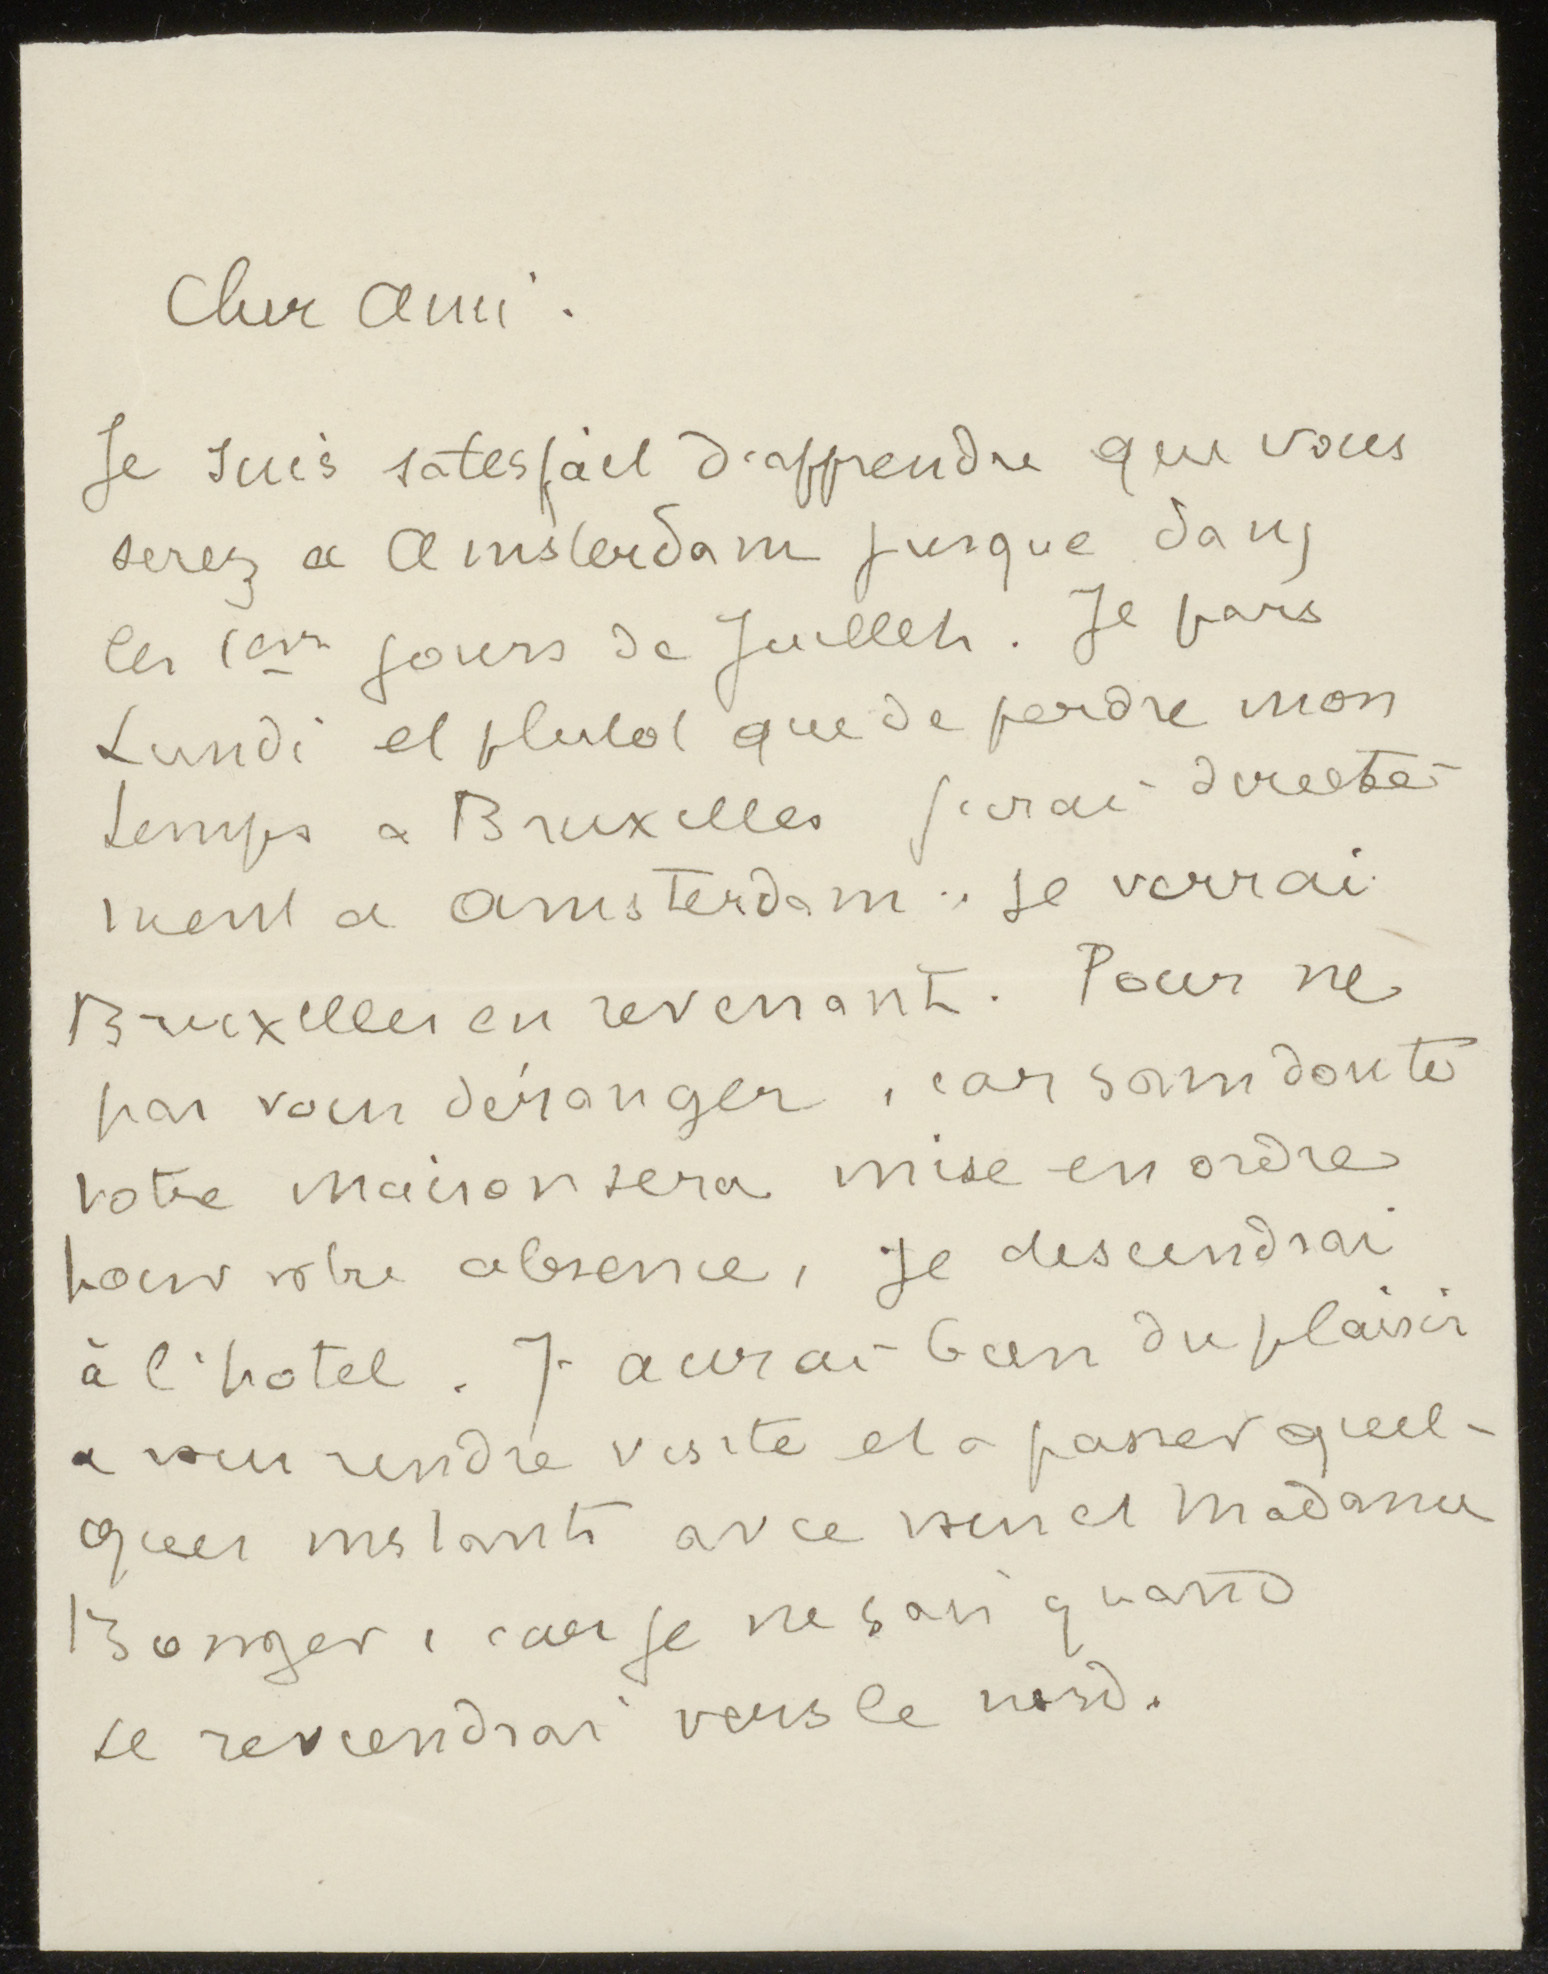 Cher Ami.
Je suis satisfait d'apprendre que vous
serez a Amsterdam jusque dans
les 1ers jours de Juillet. Je pars
Lundi et plutot que de perdre mon
temps a Bruxelles j'irai directe-
ment a Amsterdam. Je verrai
Bruxelles en revenant. Pour ne
pas vous déranger, car sans doute
votre maison sera mise en ordre
pour votre absence, je descendrai
à l'hotel. J'aurai bien du plaisir
a vous rendre visite et a passer quel-
ques instants avec vous et Madame
Bonger, car je ne sais quand
je reviendrai vers le nord.